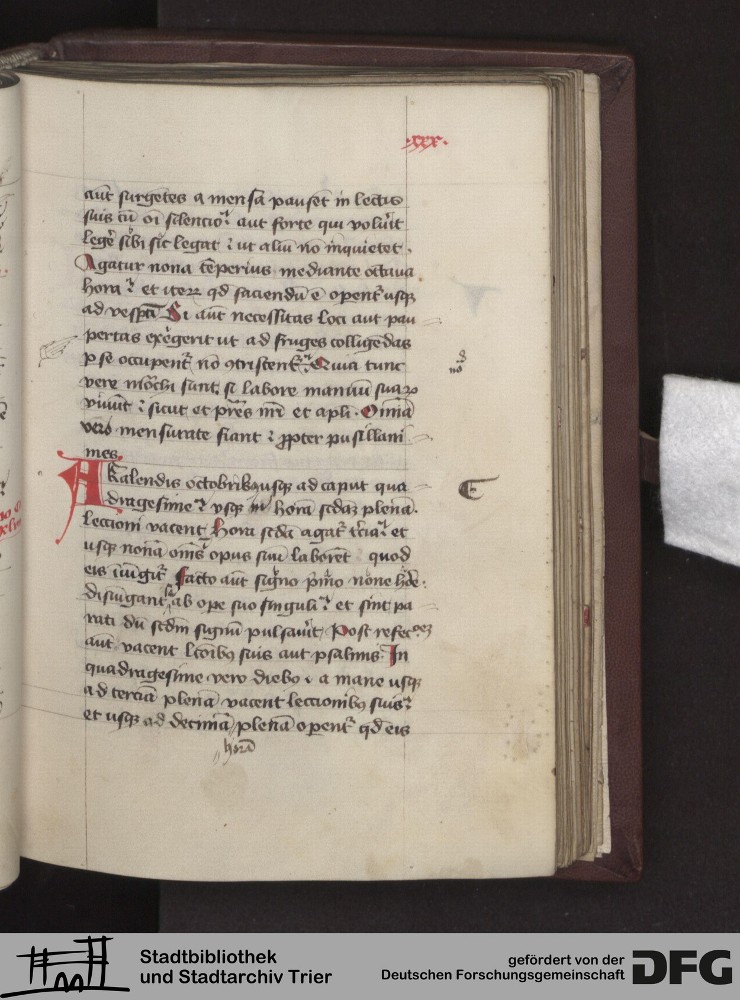 .xxx.
aut̄ surgētes a mensa pausēt in lectis
suis cū oī silencio aut forte qui volūit
legē sibi sic legat : ut aliū nō inquietet .
Agatur nona tēperius mediante octaua
hora : et iteꝝ qd faciendū ē operent᷑ usqꝫ
ad vesꝑā Si aut̄ necessitas loci aut pau
pertas exegerit ut ad fruges colligēdas
ꝑ se occupent᷑ nō ꝯtristent᷑ . Quia tunc
vere mōchi sunt si labore manuū suaꝝ
viuūt : sicut et pr̄es nr̄i et apl̄i . Omīa
vero mensurate fiant : ꝓpter pusillani
mes
A kalendis octobribꝫ usqꝫ ad caput qua
dragesime : usqꝫ in horā scdaꝫ plenā .
leccioni vacent hora scdā agat᷑ tr̄cia : et
usqꝫ nonā om̄s opus suū laborēt quod
eis iniūgit᷑ facto aut̄ signo p̄mo none hore :
disiūgant ab ope suo singuli : et sint pa
rati dū scdm signū pulsauit Post refecꝫ
aut̄ vacent lcoībꝫ suis aut psalmis In
quadragesime vero diebꝫ a mane usqꝫ
ad terciā plenā vacent leccionibꝫ suis :
et usqꝫ ad decimā plenā operent᷑ qd eis
horā
Stadtbibliothek
und Stadtarchiv Trier
gefördert von der
Deutschen Forschungsgemeinschaft
DFG